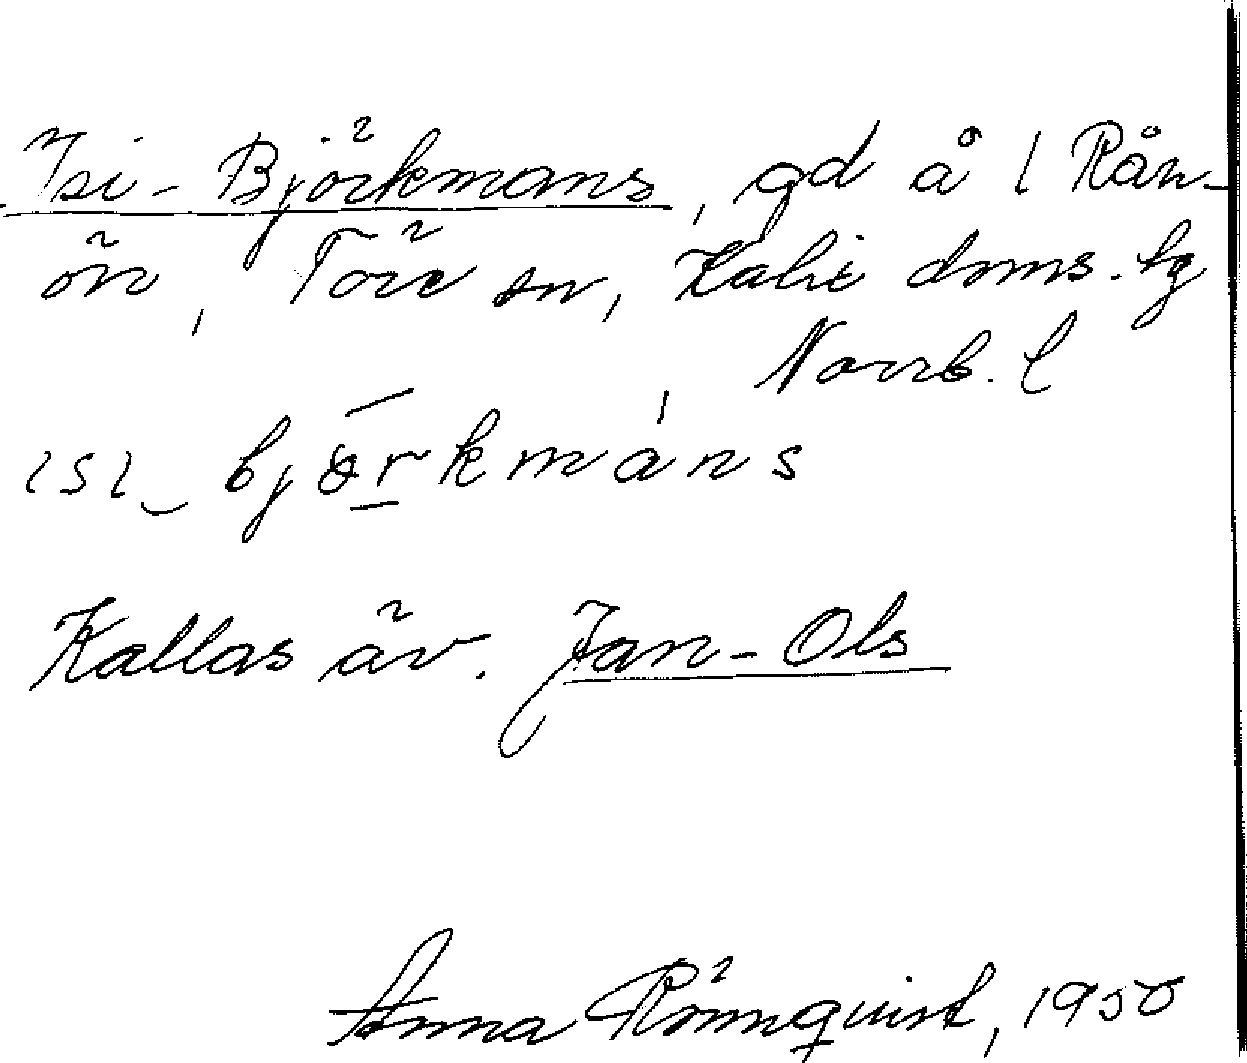 Isi-Björkmans, gd å 1 Rån-
ön, Töre sn, Kalix doms. tg
Norrb. l
ɩsɩ_ björkmáns
Kallas äv. Jan-Ols
Anna Rönnquist, 1950